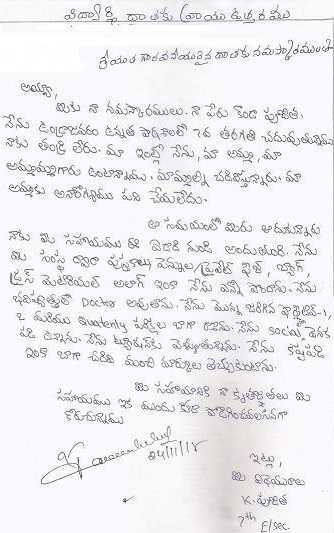 విద్యార్థి దాతకు వ్రాయు ఉత్తరము
శ్రీయుత గౌరవనీయులైన దాతకు నమస్కారములు
అయ్యా,
మీకు నా నమస్కారములు. నా పేరు కొండా పూజిత.
నేను ఉండ్రాజవరం ఉన్నత పాఠశాలలో 7వ తరగతి చదువుతున్నాను
నాకు తండ్రి లేరు. మా ఇంట్లో నేను, మా అమ్మ, మా
అమ్మమ్మగారు ఉంటాన్నాము. మామ్మల్ని చదివిస్తున్నారు. మా
అమ్మకు అనారోగ్యము పని చేయలేదు.
ఆ సమయంలో మీరు ఆదుకున్నారు
నాకు మీ సహాయము ఈ ఏడాది నుండి అందుతుంది. నేను
మీ సంస్థ ద్వారా పుస్తకాలు, పెన్నులు, ప్రైవేట్ ఫీజు, బ్యాగ్,
డ్రస్ మెటీరియల్ అలాగే ఇంకా నేను ఎన్నో పొందాను. నేను
భవిష్యత్తులో Doctor అవుతాను. నేను మొన్న జరిగిన
2 మరియు Quaterly పరీక్షలు బాగా రాశాను. నేను Social వెనక
పడి ఉన్నాను. నేను ట్యూషన్‌కు వెళ్ళుతున్నాను. నేను కష్టపడి
ఇంకా బాగా చదివి మంచి మార్కులు తెచ్చుకుంటాను.
మీ సహాయానికి నా కృతజ్ఞతలు మీ
సహాయము ఇక ముందు కూడా కొనసాగించవలసినదిగా
కోరుచున్నాను
24/11/18
ఇట్లు,
మీ విధేయురాలు
K. పూజిత
7th E/sec.